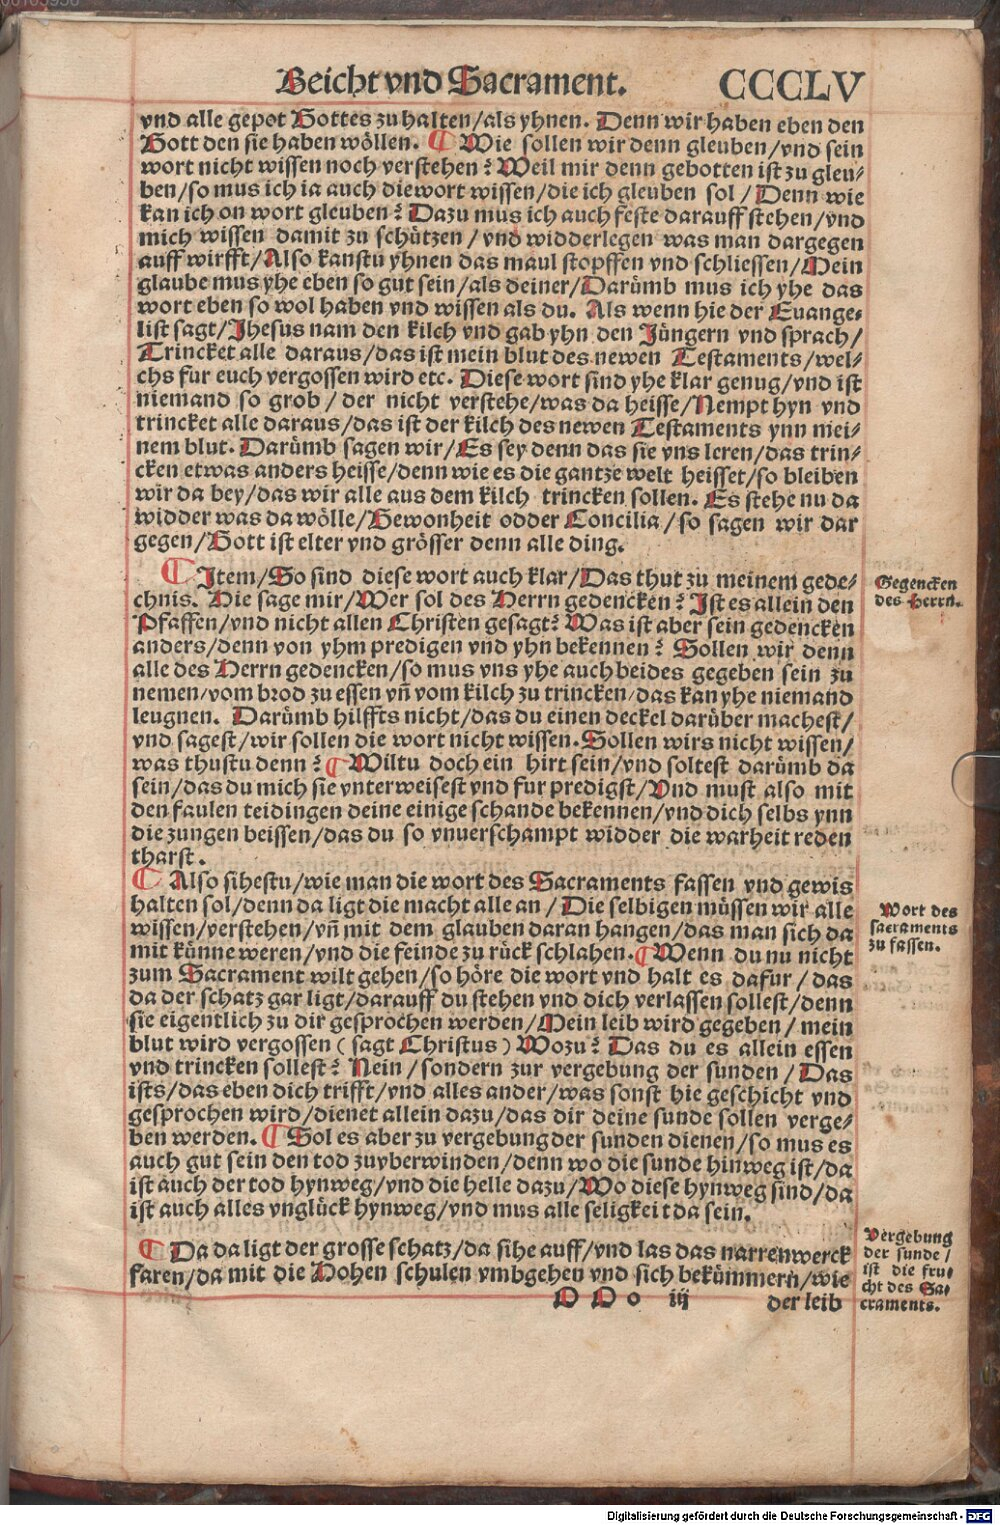 Beicht vnd Sacrament. CCCLV
vnd alle gepot Gottes zu halten/als yhnen. Denn wir haben eben den
Gott den sie haben wöllen. ¶ Wie sollen wir denn gleuben/vnd sein
wort nicht wissen noch verstehen? Weil mir denn gebotten ist zu gleu-
ben/so mus ich ia auch die wort wissen/die ich gleuben sol/Denn wie
kan ich on wort gleuben? Dazu mus ich auch feste darauff stehen/vnd
mich wissen damit zu schützen/vnd widderlegen was man dargegen
auff wirfft/Also kanstu yhnen das maul stopffen vnd schliessen/Mein
glaube mus yhe eben so gut sein/als deiner/Darümb mus ich yhe das
wort eben so wol haben vnd wissen als du. Als wenn hie der Euange-
list sagt/Jhesus nam den kilch vnd gab yhn den Jüngern vnd sprach/
Trincket alle daraus/das ist mein blut des newen Testaments/wel-
chs fur euch vergossen wird etc. Diese wort sind yhe klar genug/vnd ist
niemand so grob/der nicht verstehe/was da heisse/Nempt hyn vnd
trincket alle daraus/das ist der kilch des newen Testaments ynn mei-
nem blut. Darümb sagen wir/Es sey denn das sie vns leren/das trin-
cken etwas anders heisse/denn wie es die gantze welt heisset/so bleiben
wir da bey/das wir alle aus dem kilch trincken sollen. Es stehe nu da
widder was da wölle/Gewonheit odder Concilia/so sagen wir dar
gegen/Gott ist elter vnd grösser denn alle ding.
¶ Item/So sind diese wort auch klar/Das thut zu meinem gede-
chnis. Hie sage mir/Wer sol des Herrn gedencken? Ist es allein den
Pfaffen/vnd nicht allen Christen gesagt? Was ist aber sein gedencken
anders/denn von yhm predigen vnd yhn bekennen? Sollen wir denn
alle des Herrn gedencken/so mus vns yhe auch beides gegeben sein zu
nemen/vom brod zu essen vn̄ vom kilch zu trincken/das kan yhe niemand
leugnen. Darümb hilffts nicht/das du einen deckel darüber machest/
vnd sagest/wir sollen die wort nicht wissen. Sollen wirs nicht wissen/
was thustu denn? ¶ Wiltu doch ein hirt sein/vnd soltest darümb da
sein/das du mich sie vnterweisest vnd fur predigst/Vnd must also mit
den faulen teidingen deine einige schande bekennen/vnd dich selbs ynn
die zungen beissen/das du so vnuerschampt widder die warheit reden
tharst.
Gegencken
des Herrn.
¶ Also sihestu/wie man die wort des Sacraments fassen vnd gewis
halten sol/denn da ligt die macht alle an/Die selbigen müssen wir alle
wissen/verstehen/vn̄ mit dem glauben daran hangen/das man sich da
mit künne weren/vnd die feinde zu rück schlahen. ¶ Wenn du nu nicht
zum Sacrament wilt gehen/so höre die wort vnd halt es dafur/das
da der schatz gar ligt/darauff du stehen vnd dich verlassen sollest/denn
sie eigentlich zu dir gesprochen werden/Mein leib wird gegeben/mein
blut wird vergossen (sagt Christus) Wozu? Das du es allein essen
vnd trincken sollest? Nein/sondern zur vergebung der sunden/Das
ists/das eben dich trifft/vnd alles ander/was sonst hie geschicht vnd
gesprochen wird/dienet allein dazu/das dir deine sunde sollen verge-
ben werden. ¶ Sol es aber zu vergebung der sunden dienen/so mus es
auch gut sein den tod zuvberwinden/denn wo die sunde hinweg ist/da
ist auch der tod hynweg/vnd die helle dazu/Wo diese hynweg sind/da
ist auch alles vnglück hynweg/vnd mus alle seligkeit da sein.
Wort des
sacraments
zu fassen.
¶ Da da ligt der grosse schatz/da sihe auff/vnd las das narrenwerck
faren/da mit die Hohen schulen vmbgehen vnd sich bekümmern/wie
Vergebung
der sunde/
ist die fru-
cht des Sa-
craments.
O O o iij der leib
Digitalisierung gefördert durch die Deutsche Forschungsgemeinschaft - DFG